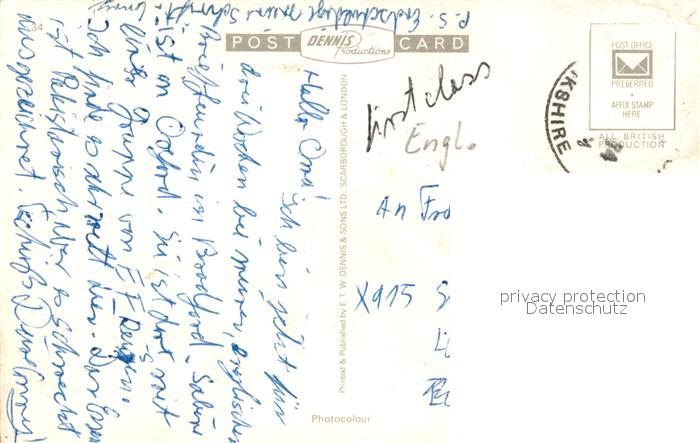 34
POST DENNIS Productions CARD
P.S. Entschuldige meine Schrift
Hallo Oma!
Ich bin jetzt für
drei Wochen bei meiner englischen
Brieffreundin in Bradford. Sabine
ist in Oxford. Sie ist dort mit
einer Gruppe von Freunden.
Ich finde es sehr nett hier. Das Essen
ist Pakistanisch aber es schmeckt
ausgezeichnet. Tschüß
Photocolour
Printed & Published by E. T. W. DENNIS & SONS LTD., SCARBOROUGH & LONDON
first class
Engl.
KSHIRE
POST OFFICE
PREFERRED
AFFIX STAMP
HERE
ALL BRITISH
PRODUCTION
An Fra
X915
privacy protection
Datenschutz